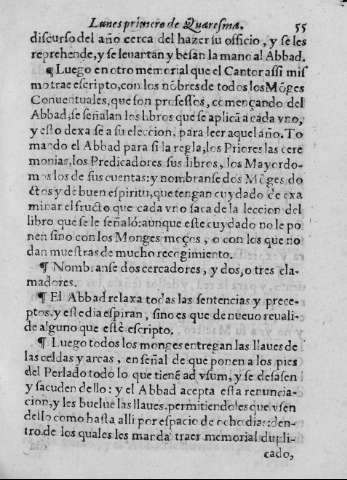 Lunes primero de Quaresma. 55
discurso del año cerca del hazer su officio, y se les
reprehende, y se leuartan y besan la mano al Abbad.
¶ Luego en otro memorial que el Cantor assi mis
mo trae escripto, con los nõbres de todos los Mõges
Conuentuales, que son professos, començando del
Abbad, se señalan los libros que se aplicã a cada vno,
y esto dexase a su eleccion, para leer aquel año. To
mando el Abbad para si la regla, los Priores las cere
monias, los Predicadores sus libros, los Mayordo-
mos los de sus cuentas: y nombranse dos Mõges do
ctos y de buen espiritu, que tengan cuydado de exa
minar el fructo que cada vno saca de la leccion del
libro que se le señalò: aunque este cuydado no le po
nen sino con los Monges moços, o con los que no
dan muestras de mucho recogimiento.
¶ Nombranse dos cercadores, y dos, o tres cla-
madores.
¶ El Abbad relaxa todas las sentencias y prece-
ptos, y este dia espiran, sino es que de nueuo reuali-
de alguno que estè escripto.
¶ Luego todos los monges entregan las llaues de
las celdas y arcas, en señal de que ponen a los pies
del Perlado todo lo que tienẽ ad vsum, y se desasen
y sacuden dello: y el Abbad acepta esta renuncia-
cion, y les buelue las llaues, permitiendoles que vsen
dello como hasta alli por espacio de ocho dias: den-
tro de los quales les manda traer memorial dupli-
cado,